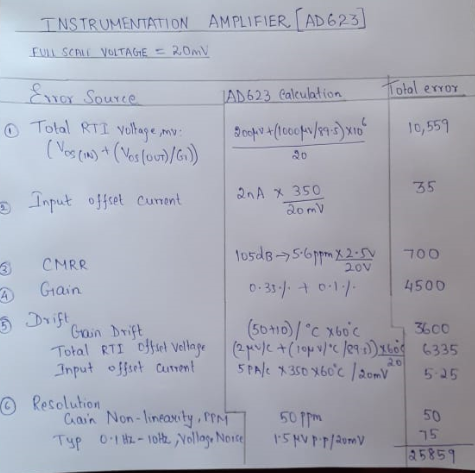 INSTRUMENTATION AMPLIFIER [AD623]
FULL SCALE VOLTAGE = 20mV
Error Source AD623 Calculation Total error
① Total RTI Voltage, mv: 200μV+(1000μV/89.5)×10⁶ 10,559
(VOS(IN) + (VOS(OUT)/G)) 20
② Input offset Current 2nA × 350 35
20mV
③ CMRR 105dB → 5.6ppm × 2.5V 700
20V
④ Gain 0.35% + 0.1% 4500
⑤ Drift
Gain Drift (50+10)/°C ×60°C 3600
Total RTI Offset Voltage (2μV/C + (10μV/°C/89.5))×60°C 6335
20
Input offset Current 5PA/c ×350×60°C /20mV 5.25
⑥ Resolution
Gain Non-linearity, PPM 50ppm 50
Typ 0.1Hz-10Hz, Voltage Noise 1.5μV P.P/20mV 75
25859